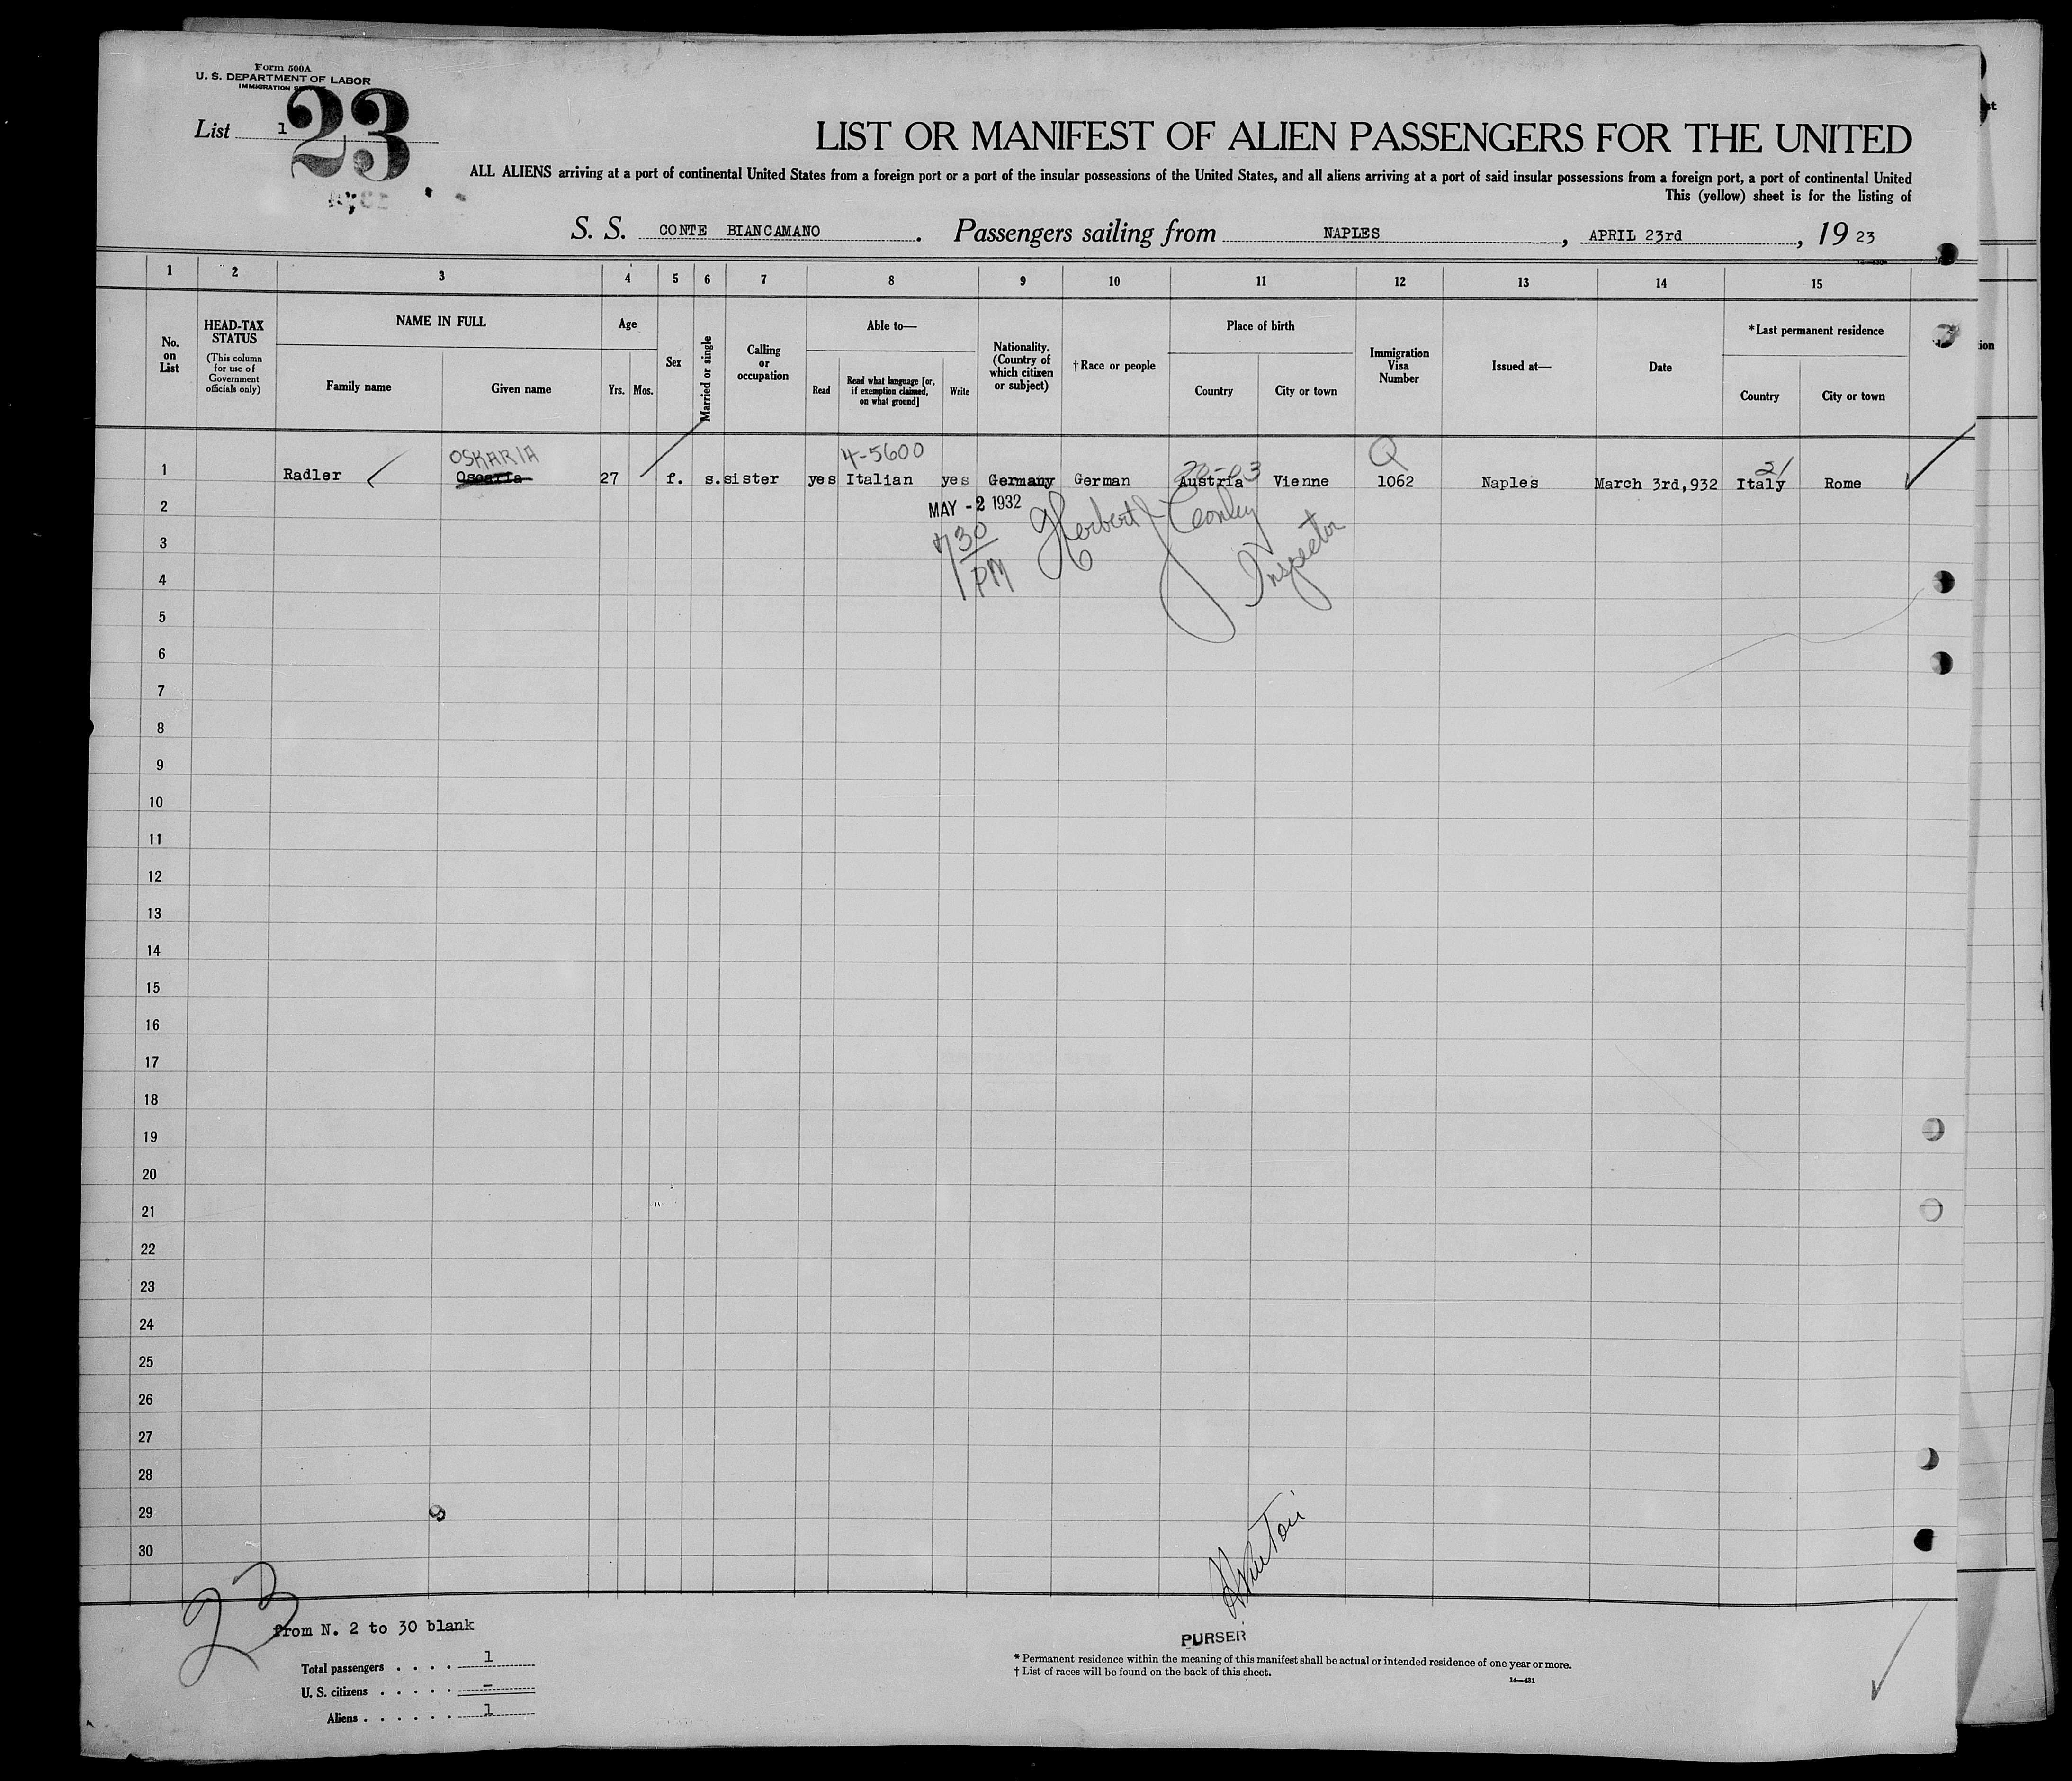 Form 500A
U. S. DEPARTMENT OF LABOR
IMMIGRATION
List 1
23
LIST OR MANIFEST OF ALIEN PASSENGERS FOR THE UNITED
ALL ALIENS arriving at a port of continental United States from a foreign port or a port of the insular possessions of the United States, and all aliens arriving at a port of said insular possessions from a foreign port, a port of continental United
This (yellow) sheet is for the listing of
S. S. CONTE BIANCAMANO . Passengers sailing from NAPLES , APRIL 23rd , 19 23
1 2 3 4 5 6 7 8 9 10 11 12 13 14 15
No. on List
HEAD-TAX STATUS
(This column for use of Government officials only)
NAME IN FULL
Family name
Given name
Age
Yrs.
Mos.
Sex
Married or single
Calling or occupation
Able to—
Read
Read what language [or, if exemption claimed, on what ground]
Write
Nationality. (Country of which citizen or subject)
†Race or people
Place of birth
Country
City or town
Immigration Visa Number
Issued at—
Date
*Last permanent residence
Country
City or town
OSKARIA
4-5600
Q
21
1 Radler Oscaria 27 f. s. sister yes Italian yes Germany German Austria Vienne 1062 Naples March 3rd,932 Italy Rome
MAY - 2 1932
730 PM
Herbert J Conley
Inspector
2
3
4
5
6
7
8
9
10
11
12
13
14
15
16
17
18
19
20
21
22
23
24
25
26
27
28
29
30
23
from N. 2 to 30 blank
Total passengers . . . . 1
U. S. citizens . . . . . –
Aliens . . . . . . 1
PURSER
* Permanent residence within the meaning of this manifest shall be actual or intended residence of one year or more.
† List of races will be found on the back of this sheet.
14—431